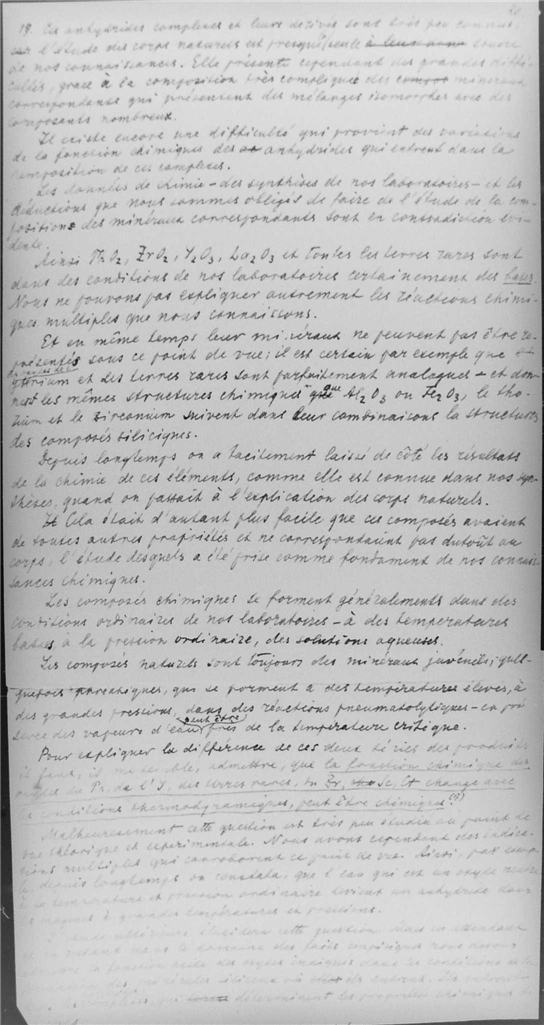 19. Ces anhydrides complexes et leurs dérivés sont très peu connus,
car l'étude des corps naturels est presque seule source
de nos connaissances. Elle présente cependant des grandes diffi-
cultés, grâce à la composition très compliquée des minéraux
correspondants qui présentent des mélanges isomorphes avec des
composants nombreux.
Il existe encore une difficulté qui provient des variations
de la fonction chimiques des anhydrides qui entrent dans la
composition de ces complexes.
Les données de chimie – des synthèses de nos laboratoires – et les
déductions que nous sommes obligés de faire de l'étude de la com-
positions des minéraux correspondants sont en contradiction évi-
dente.
Ainsi ThO2, ZrO2, Y2O3, La2O3 et toutes les terres rares sont
dans des conditions de nos laboratoires certainement des bases.
Nous ne pouvons pas expliquer autrement les réactions chimi-
ques multiples que nous connaissons.
Et en même temps leur minéraux ne peuvent pas être re-
présentés sous ce point de vue; il est certain par exemple que
yttrium et les terres rares sont parfaitement analogues – et don-
nent les mêmes structures chimiques que Al2O3 ou Fe2O3, le tho-
rium et le zirconium suivent dans leur combinaisons la structure
des composés siliciques.
Depuis longtemps on a tacitement laissé de côté les résultats
de la chimie de ces éléments, comme elle est connue dans nos syn-
thèses, quand on passait à l'explication des corps naturels.
Cela était d'autant plus facile que ces composés avaient
de toutes autres propriétés et ne correspondaient pas dutoût au
corps, l'étude desquels a été prise comme fondament de nos connais-
sances chimiques.
Les composés chimiques se forment généralements dans des
conditions ordinaires de nos laboratoires – à des temperatures
basses, à la pression ordinaire, des solutions aqueuses.
Les composés naturels sont toujours des minéraux juvéniles, quel-
quefois phréatiques, qui se forment à des températures élevées, à
des grandes pressions, dans des réactions pneumatolytiques – en pré-
sence des vapeurs d'eau peut être près de la température critique.
Pour expliquer la différence de ces deux séries des produits
il faut, il me semble, admettre, que la fonction chimique des
oxydes du des terres rares, du Zr, Sc, change avec
les conditions thermodynamiques, peut être chimiques (?)
Malheureusement cette question est très peu étudiée au point de
vue théorique et expérimentale. Nous avons cependant des indica-
tions multiples qui corroborent ce point de vue. Ainsi, par exemple
depuis longtemps on constata, que l'eau qui est un oxyde neutre
à la température et pression ordinaire devient un anhydride dans
les magmas à grandes températures et pressions.
cette question. Mais en attendant
et en restant dans le domaine des faits empiriques nous devons
la fonction acide des oxydes indiqués dans les conditions de la
des minéraux où ils entrent.
qui déterminent les propriétés chimiques de